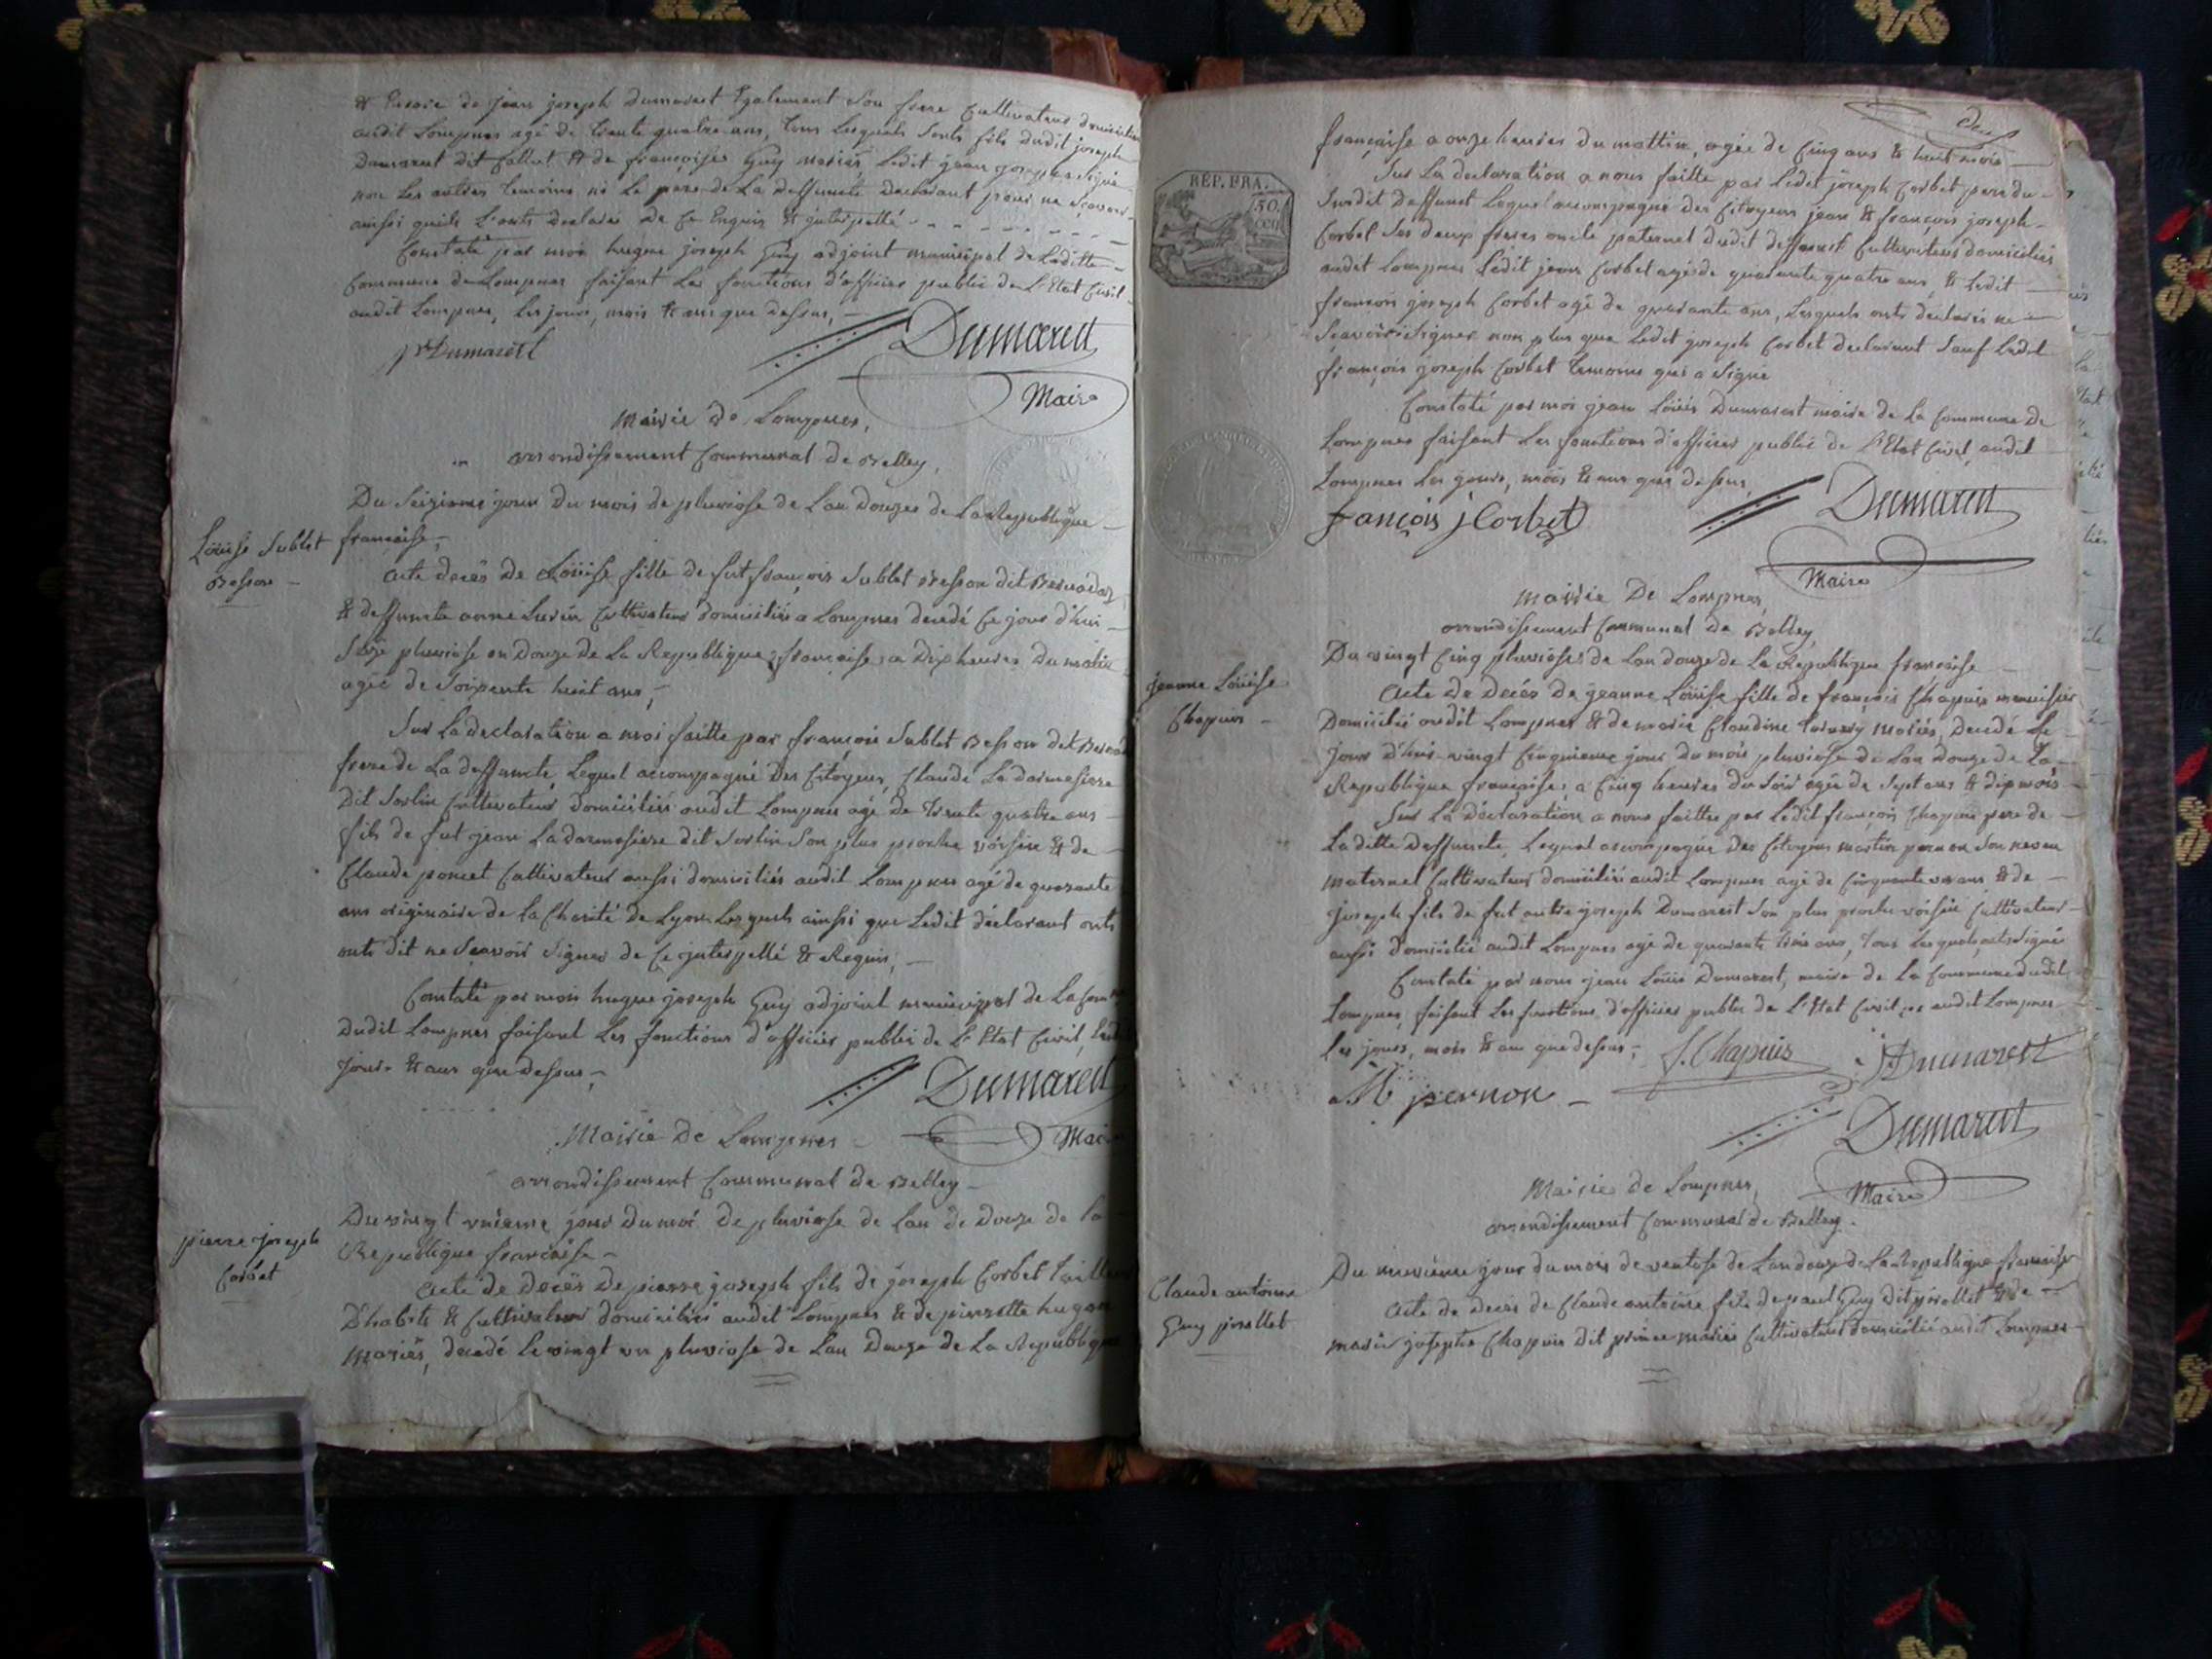 & Encore de jean joseph dumarest Egalement Son frere Cultivateur domicilié
audit Lompnes agé de trente quatre ans, tous Lesquels sonts fils dudit joseph
Dumarest dit Collet & de françoise Guy mariés, Ledit jean joseph a signé
non Les autres temoins ni Le pere de La deffuncte Declarant pour ne sçavoir
ainsi quils L'onts declarés de Ce Enquis & jnterpellé
Constaté par moi hugue joseph Guy adjoint municipal de Laditte
Commune de Lompnes faisant Les fonctions d'officier public de L'Etat Civil
audit Lompnes, Les jour, mois & an que dessus,
Dumarest
jh Dumarest
Maire
Mairie de Lompnes,
arrondissement Communal de Belley,
Du seizieme jour du mois de pluviose de L'an douze de La Republique
Loüise Sublet
Besson
française,
Acte decès de Loüise fille de fut françois Sublet Besson dit
& deffuncte anne Cultivateur domiciliés a Lompnes decedé Ce jour d'hui
Seize pluviose an Douze de La Republique française a Dix heures du matin
agée de soixante huit ans,
Sur La declaration a moi faitte par françois Sublet Besson dit
frere de La deffuncte, Lequel accompagné des Citoyens, Claude Ladarmesiere
Dit Sorlin Cultivateur domicilié audit Lompnes agé de trente quatre ans
fils de fut jean Ladarmesiere dit Sorlin Son plus proche voisin & de
Claude poncet Cultivateur aussi domiciliés audit Lompnes agé de quarante
ans originaire de La Charité de Lyon Lesquels ainsi que Ledit déclarant onts
onts dit ne Sçavoir Signer de Ce jnterpellé & Requis,
Constaté par moi hugue joseph Guy adjoint municipal de La
Dudit Lompnes faisant Les fonctions d'officier public de L'Etat Civil,
jour & an que dessus,
Dumarest
Mairie De Lompnes
Mai
arrondissement Communal de Belley
Du vingt unieme jour du moi de pluviose de L'an de Douze de la
pierre joseph
Corbet
Republique française
Acte de Decès de pierre joseph fils de joseph Corbet
D'habits & Cultivateur domiciliés audit Lompnes & de pierrette hugon
mariés, decedé Le vingt un pluviose de L'an Douze de La Republique
deux
REP. FRA.
50
française a onze heures du mattin, agée de Cinq ans & huit mois
Sur La declaration a nous faitte par Ledit joseph Corbet pere du
Susdit Deffunct Lequel accompagné des Citoyens jean & françois joseph
Corbet Ses deux freres oncle paternel dudit deffunct Cultivateurs domiciliés
audit Lompnes Ledit jean Corbet agé de quarante quatre ans, & Ledit
françois joseph Corbet agé de quarante ans, Lesquels onts declarés ne
Sçavoir Signer non plus que Ledit joseph Corbet declarant Sauf Ledit
françois joseph Corbet temoins qui a Signé
Constaté par moi jean Loüis Dumarest maire de La Commune de
Lompnes faisant Les fonctions d'officier public de L'Etat Civil, audit
Lompnes Les jours, mois & ans que dessus,
françois j Corbet
Dumarest
Maire
Mairie De Lompnes,
arrondissement Communal de Belley,
Du vingt Cinq pluviose de L'an douze de La Republique française
jeanne Loüise
Chapuis
Acte de Decès de jeanne Loüise fille de françois Chapuis menuisier
Domicilié audit Lompnes & de marie Claudine mariés, Decedé Le
jour d'hui vingt Cinquieme jour du mois pluviose de L'an douze de La
Republique française a Cinq heures du Soir agée de Sept ans & dix mois
Sur La déclaration a nous faitte par Ledit françois Chapuis pere de
La ditte Deffuncte, Lequel accompagné des Citoyens martin pernon Son neveu
maternel Cultivateur domicilié audit Lompnes agé de Cinquante ans & de
joseph fils de fut autre joseph Dumarest Son plus proche voisin Cultivateur
aussi domicilié audit Lompnes agé de quarante trois ans, tous Lesquels onts Signé
Constaté par nous jean Loüis Dumarest, maire de La Commune dudit
Lompnes, faisant Les fonctions d'officier public de L'Etat Civil, audit Lompnes
Les jours, mois & an que dessus,
f. Chapuis
j Dumarest
M pernon
Dumarest
Maire
Mairie de Lompnes,
arrondissement Communal de Belley.
Du neuvieme jour du mois de ventose de L'an douze de La Republique française
Claude antoine
Guy pirollet
Acte de Decès de Claude antoine fils de paul Guy dit pirollet & de
marie josephte Chapuis dit prince mariés Cultivateurs domicilié audit Lompnes